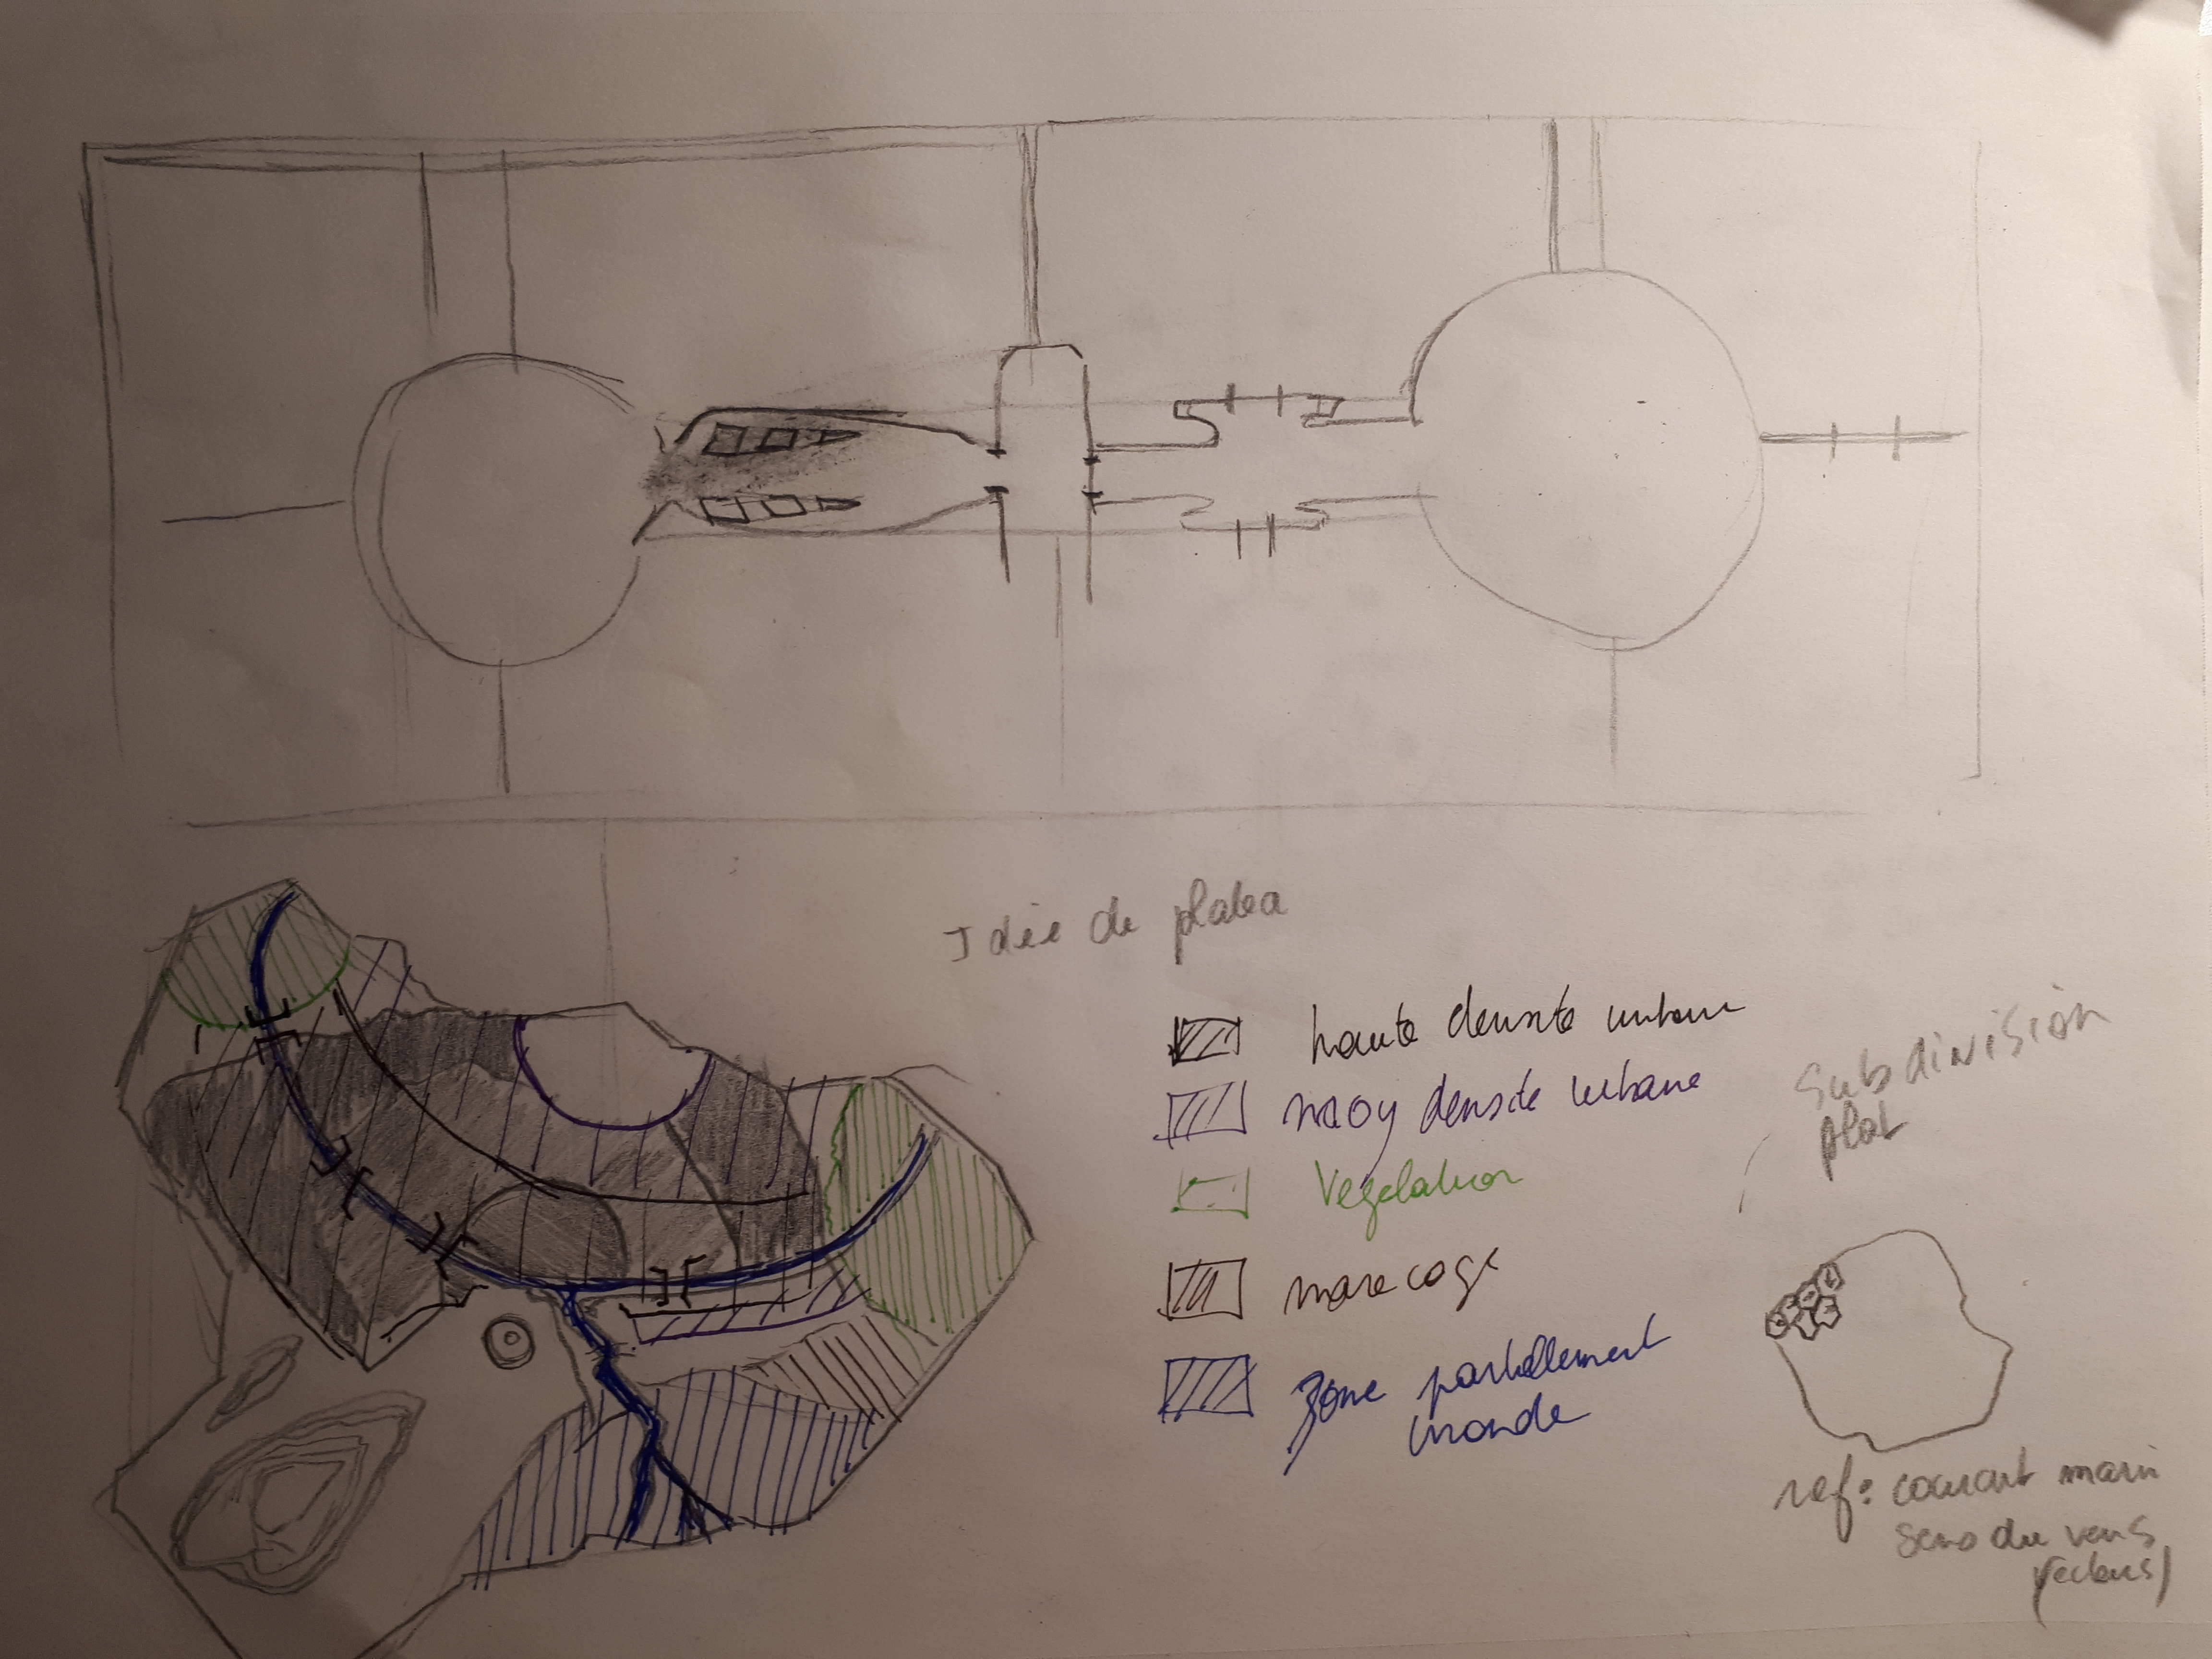 Idée de platea
haute densite urbaine
moy densite urbane
Vegetation
marecage
Zone partiellement
inonde
Subdivision
plat
ref: courant marin
sens du vens